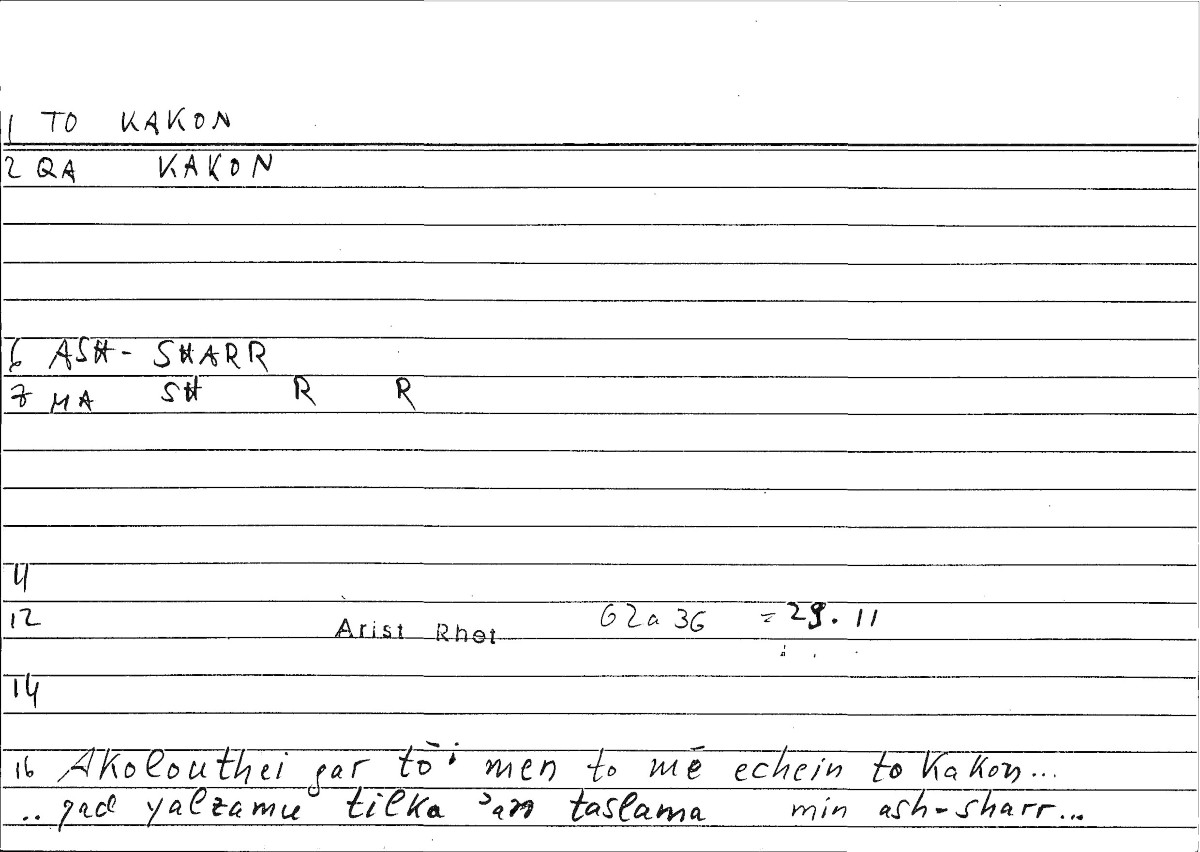 1 TO KAKON
2 QA KAKON
6 ASH- SHARR
7 MA SH R R
11
12 Arist Rhet 62a 36 = 29. 11
14
16 Akolouthei gar tōi men to mē echein to kakon...
.. qad yalzamu tilka ʾan taslama min ash-sharr...